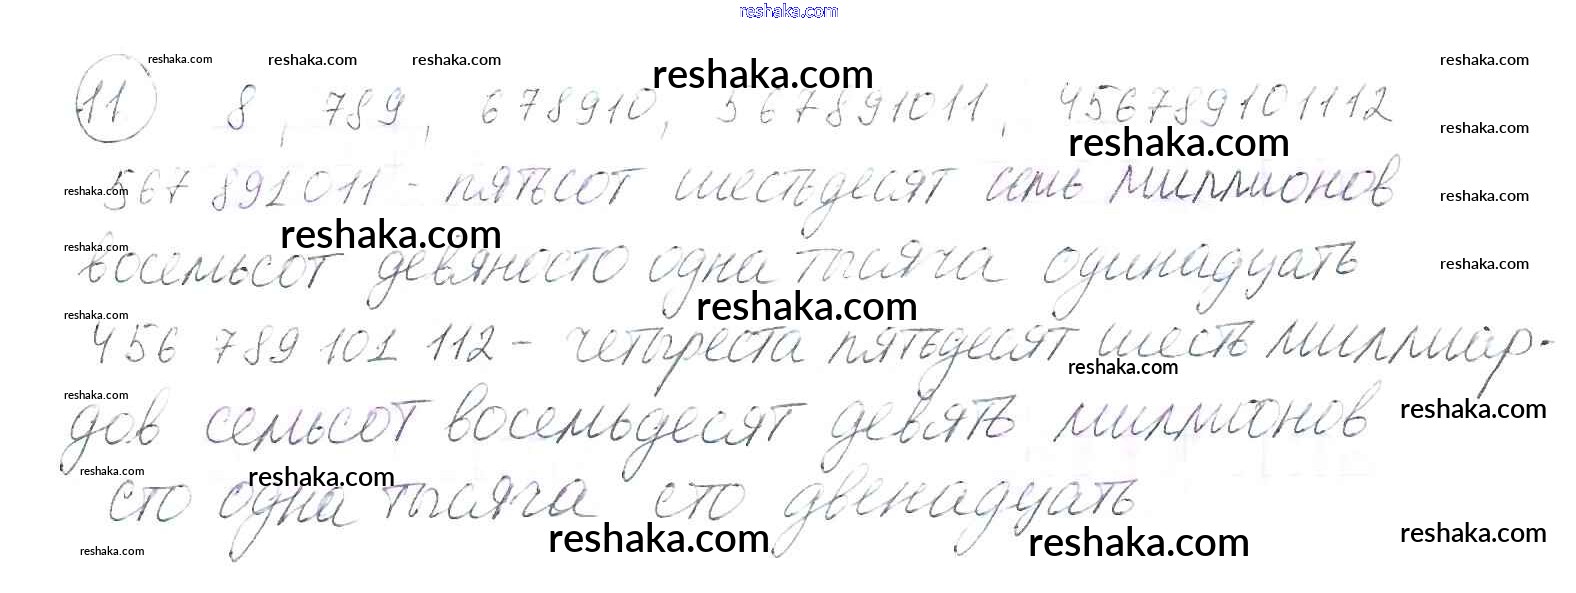 reshaka.com
reshaka.com reshaka.com reshaka.com reshaka.com reshaka.com
11 8, 789, 678910, 567891011, 456789101112
reshaka.com reshaka.com
reshaka.com 567 891 011 - пятьсот шестьдесят семь миллионов reshaka.com
reshaka.com reshaka.com
восемьсот девяносто одна тысяча одинадцать reshaka.com
reshaka.com reshaka.com
456 789 101 112 - четыреста пятьдесят шесть миллиар-
reshaka.com
reshaka.com reshaka.com
дов семьсот восемьдесят девять миллионов
reshaka.com reshaka.com
сто одна тысяча сто двенадцать
reshaka.com reshaka.com reshaka.com reshaka.com